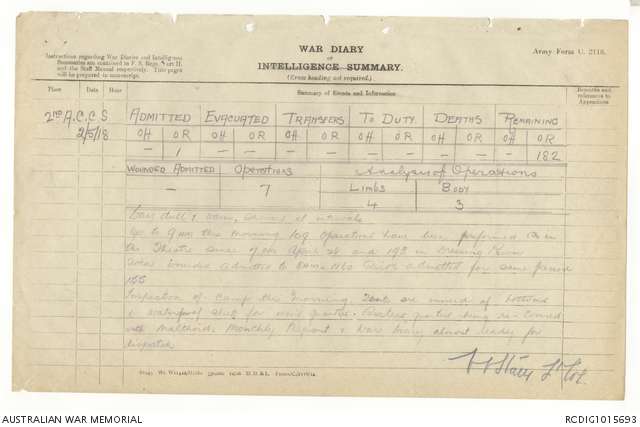 Instructions regarding War Diaries and Intelligence
Summaries are contained in F. S. Regs., Part II.
and the Staff Manual respectively. Title pages
will be prepared in manuscript.
WAR DIARY
or
INTELLIGENCE SUMMARY.
(Erase heading not required.)
Army Form C. 2118.
Place Date Hour Summary of Events and Information Remarks and references to Appendices
2ND A.C.C.S
2/5/18
ADMITTED EVACUATED TRANSFERS TO DUTY DEATHS REMAINING
OH OR OH OR OH OR OH OR OH OR OH OR
- 1 - - - - - - - - - 182
WOUNDED ADMITTED OPERATIONS Analysis of Operations
- 7 LIMBS BODY
4 3
Day dull & warm, at intervals
Up to 9 am this morning 109 operations have been performed in
the Theatre since 9 am April and 193 in Dressing Room
Total wounded admitted to same 1160 Sick admitted for same period
155
Inspection of Camp this morning. Tents are in need of
& waterproof sheets for quarters. quarters being re-covered
with malthoid. Monthly Report & War Diary almost ready for
dispatch
Lt Col.
AUSTRALIAN WAR MEMORIAL
RCDIG1015693